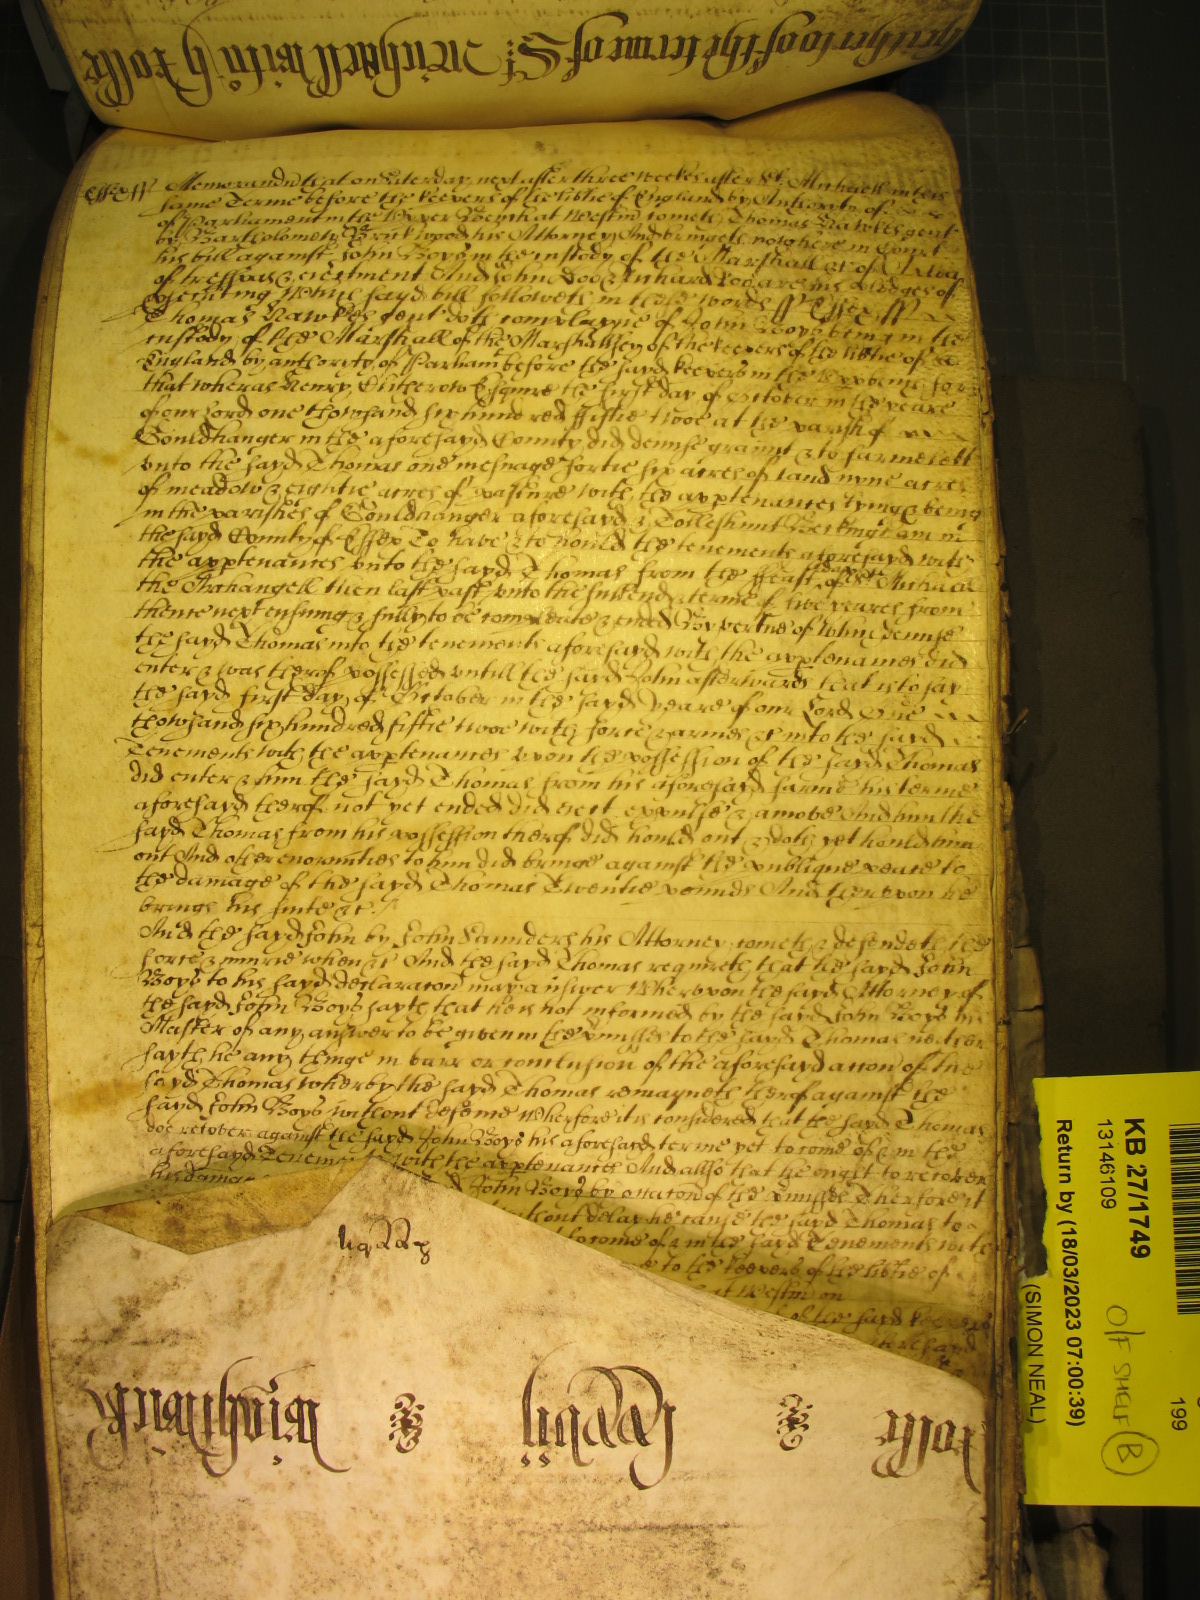 hitherto of the terme of St. Michaell with y Rolle
Essex ss Memorandu that on Saterday next after three weekes after St. Michaell in this
same Terme before the keepers of the libtie of England by Authority of
of Parliament in the Upper Bench at Westm cometh Thomas Hawkes gent
by Bartholomew his Attorney And bringeth now here in Court
his bill against John Boys in the custody of the Marshall &c of a plea
of trespas & eiectment And John Doo & Richard Roo are his pledges of
psecuting Which sayd bill followeth in these words ss Essex ss
Thomas Hawkes gent doth complayne of John Boys being in the
custody of the Marshall of the Marshallsey of the keepers of the libtie of
England by authority of Parliamt before the sayd keepers in the Upp bench for
that wheras Henry Esquire the first day of October in the yeare
of our Lord one thowsand six hundred fiftie twoe at the parish of
Gouldhanger in the aforesayd County did demise graunt & to farme lett
unto the sayd Thomas one mesuage fortie six acres of land nyne acres
of meadow & eightie acres of pasture with the apptenances lying & being
in the parishes of Gouldhanger aforesayd & Tolleshunt in
the sayd County of Essex To have & to hould the tenements aforesayd with
the apptenances unto the sayd Thomas from the ffeast of St Michael
the Archangell then last past unto the full end & terme of five yeares from
thence next ensuing & fully to be compleate & ended By vertue of which demise
the sayd Thomas into the tenements aforesayd with the apptenances did
enter & was therof possessed untill the sayd John afterwards that is to say
the sayd first day of October in the sayd yeare of our Lord One
thowsand six hundred fiftie twoe with force & armes &c into the sayd
Tenements with the apptenances upon the possession of the sayd Thomas
did enter & him the sayd Thomas from his aforesayd farme his terme
aforesayd therof not yet ended did eiect expulse & amove And him the
sayd Thomas from his possession therof did hould out & doth yet hould him
out And other enormities to him did bringe against the publique peace to
the damage of the sayd Thomas Twentie pounds And therupon he
brings his suite &c.
And the sayd John by John Saunders his Attorney cometh & defendeth the
force & iniurie when &c And the sayd Thomas requireth that the sayd John
Boys to his sayd declaracon may answer Wherupon the sayd Attorney of
the sayd John Boys sayth that he is not informed by the sayd John Boys his
Master of any answer to be given in the pmisses to the sayd Thomas neither
sayth he any thinge in barr or conclusion of the aforesayd accon of the
sayd Thomas wherby the sayd Thomas remayneth therof against the
sayd John Boys without defence Wherfore it is considered that the sayd Thomas
doe recover against the sayd John Boys his aforesayd terme yet to come of & in the
aforesayd Tenements with the apptenances And allso that he ought to recover
his damages John Boys by occacon of the pmisses Therfore it
without delay he cause the sayd Thomas to
to come of & in the sayd Tenements with
to the keepers of the libtie of
at Westm on
of the sayd keepers
aforesayd
Rolle
KB 27/1749
13146109
Return by (18/03/2023 07:00:39)
(SIMON NEAL)
O/F SHELF B
199